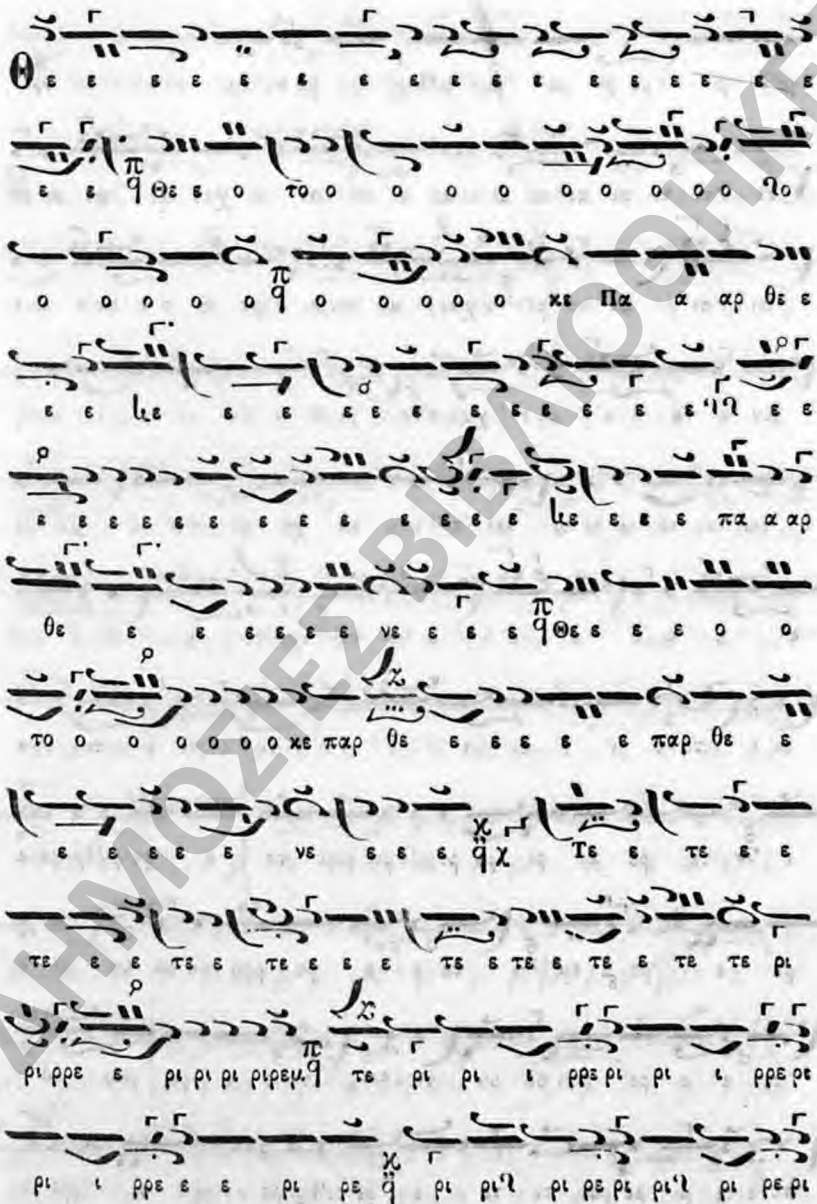 Θε ε ε ε ε ε ε ε ε ε ε ε ε ε ε
ε ε Θε ε ο το ο ο ο ο ο ο ο ο ο ο λο
ο ο ο ο ο ο ο ο ο ο ο κε Πα α αρ θε ε
ε ε ε ε ε ε ε ε ε ε ε ε ε ε ε ε
ε ε ε ε ε ε ε ε ε ε ε ε ε ε ε ε ε πα α αρ
θε ε ε ε ε ε ε νε ε ε ε Θε ε ε ε ο ο
το ο ο ο ο ο ο κε παρ θε ε ε ε ε ε παρ θε ε
ε ε ε ε ε νε ε ε ε Τε ε τε ε ε
τε ε ε τε ε τε ε ε ε τε ε τε ε τε ε τε τε ρι
ρι ρρε ε ρι ρι ρι ριρεμ τε ρι ρι ι ρρε ρι ρι ι ρρε ρε
ρι ι ρρε ε ε ρι ρε ρι ρι ρι ρε ρι ρι ρι ρε ρι
ΔΗΜΟΣΙΕΣ ΒΙΒΛΙΟΘΗΚΕ